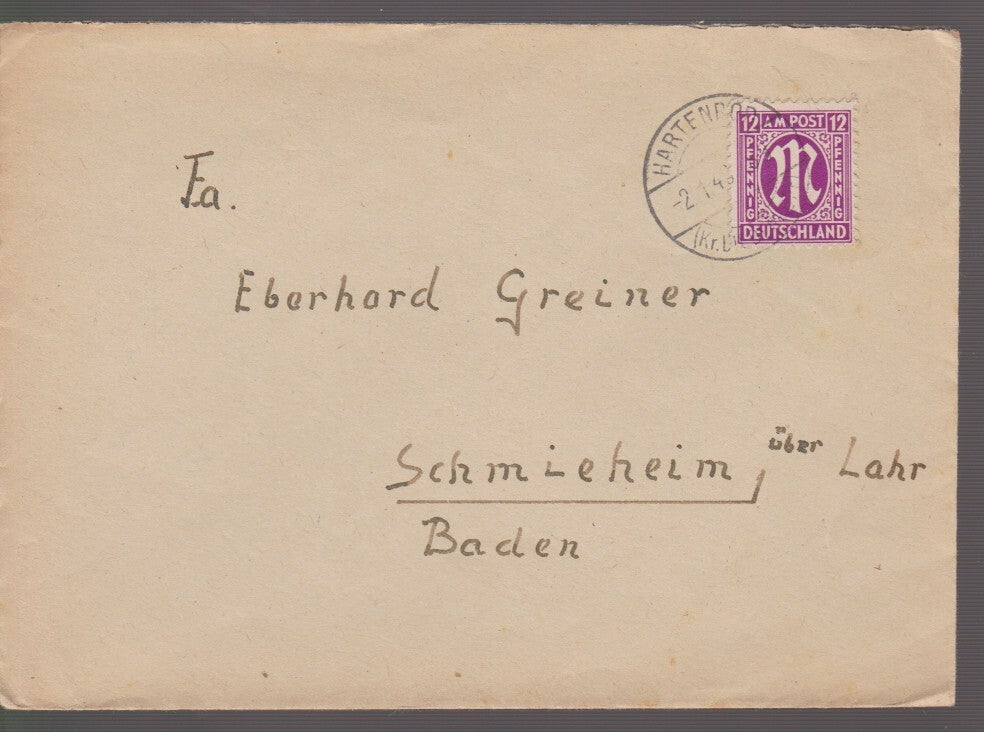 HARTENROD
-2.1.4
(Kr.
12 AM POST 12
PFENNIG PFENNIG
DEUTSCHLAND
Fa.
Eberhard Greiner
Schmieheim, über Lahr
Baden